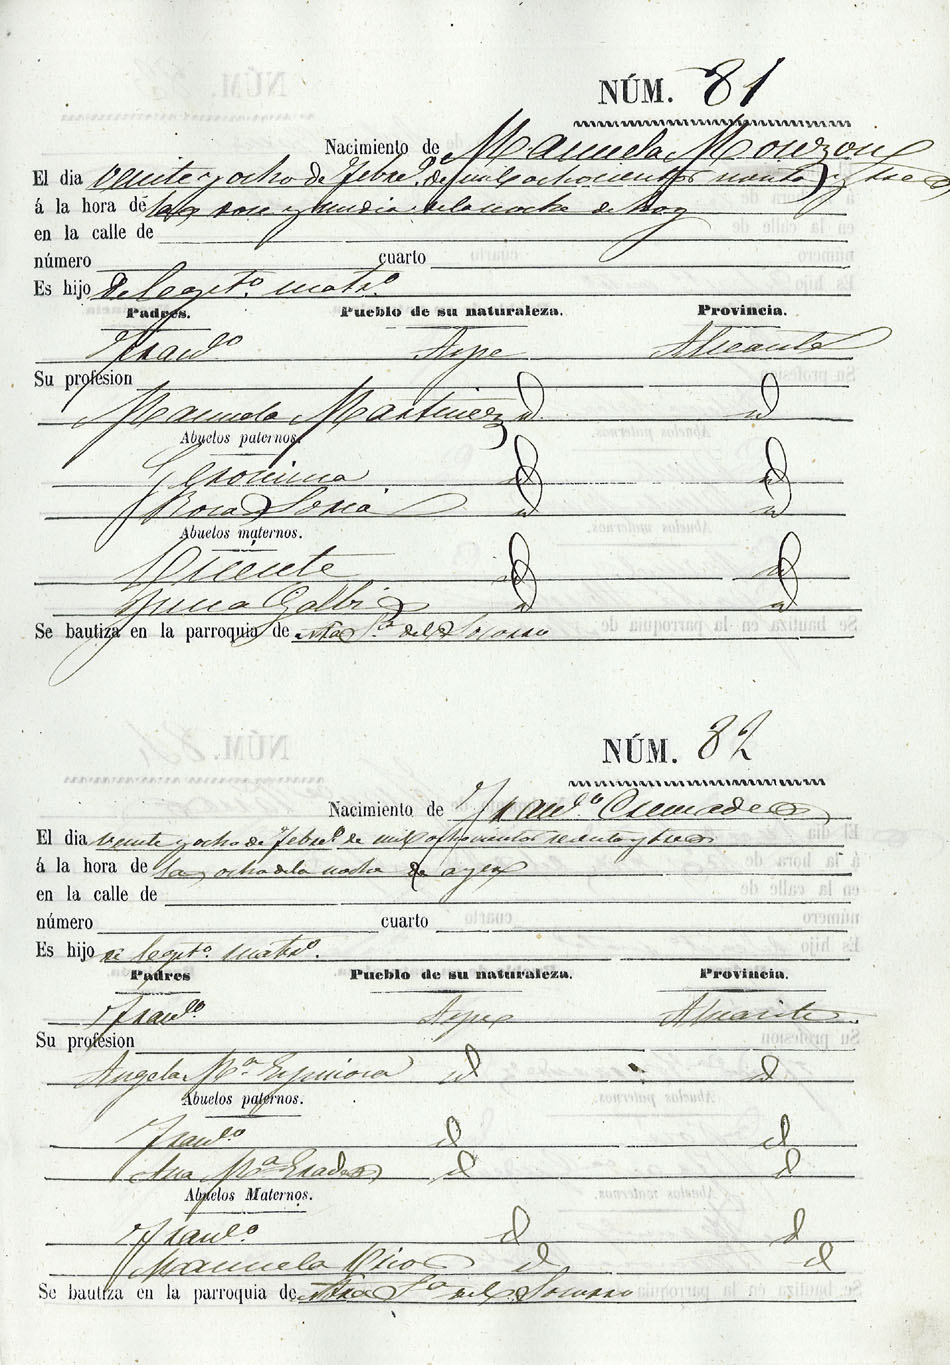 NÚM. 81
Nacimiento de Manuela Monzon
El dia veinte y ocho de Febr.º de mil ochocientos y tres
á la hora de las doce y media de la noche de hoy
en la calle de
número cuarto
Es hijo de legit.º matr.º
Padres. Pueblo de su naturaleza. Provincia.
Fran.co Aspe Alicante
Su profesion
Manuela Martinez id id
Abuelos paternos.
Geronimo id id
Rosa Soria id id
Abuelos maternos.
Vicente id id
id id
Se bautiza en la parroquia de Ntra S.ra del Socorro
NÚM. 82
Nacimiento de Fran.co Cremades
El dia veinte y ocho de Febr.º de mil ochocientos y tres
á la hora de las ocho de la noche de ayer
en la calle de
número cuarto
Es hijo de legit.º matr.º
Padres Pueblo de su naturaleza. Provincia.
Fran.co Aspe Alicante
Su profesion
Angela M.ª Espinosa id id
Abuelos paternos.
Fran.co id id
Ana M.ª id id
Abuelos Maternos.
Fran.co id id
Manuela id id
Se bautiza en la parroquia de Ntra S.ra del Socorro